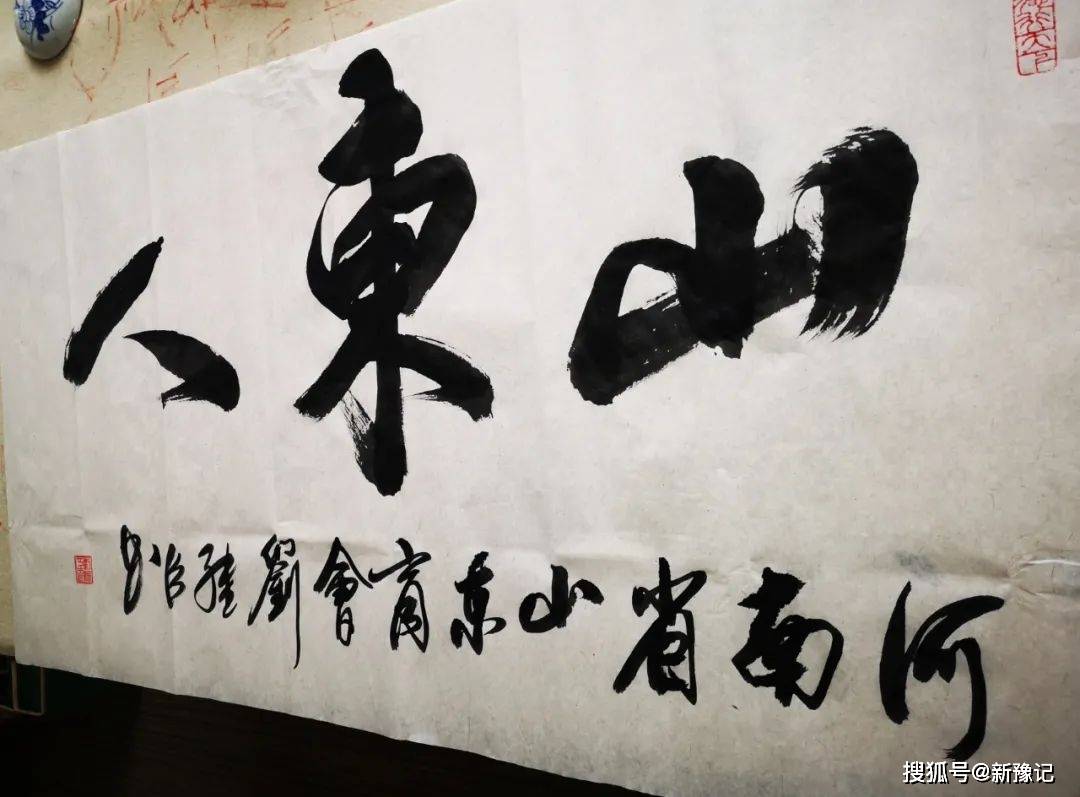 山東人
河南省山东商會劉书
搜狐号@新豫记